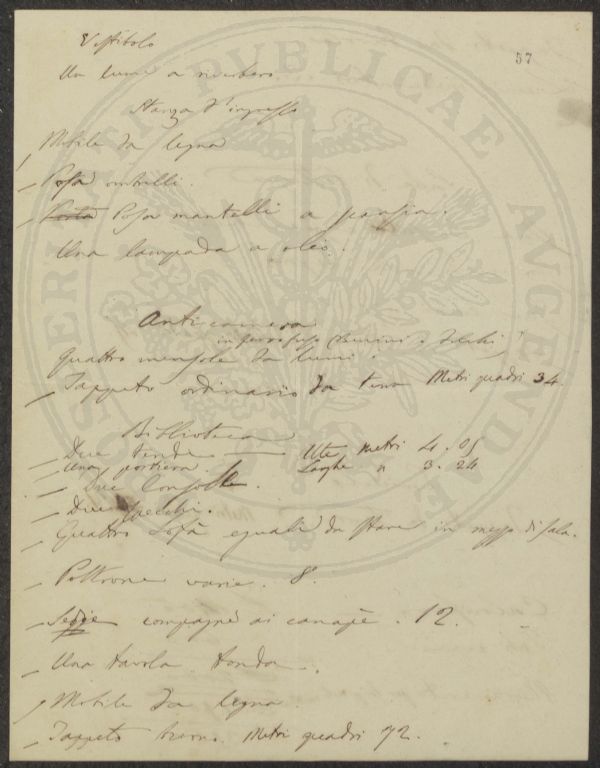 57
Vestibolo
Un lume a riverbero
Stanza d'ingresso
Mobile da legna
Posa ombrelli.
Porta Posa mantelli a
Una lampada a oleo.
Anticamera
in ferro fuso
Quattro mensole da lumi.
Tappeto ordinario da terra Metri quadri 34.
Biblioteca
Due tende — Alte Metri 4.05
Una portiera. Larghe n 3.24
Due Consolle.
Due specchi.
Quattro Sofà eguali da stare in mezzo di sala.
Poltrone varie. 8.
Sedie compagne ai canapè. 12.
Una tavola tonda.
Mobile da legna.
Tappeto buono. Metri quadri 72.